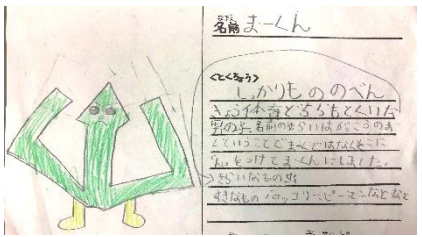 名前 なまえ
まーくん
<とくちょう>
しっかりもののべん
きょう体育どちらもとくいな
男の子。名前のゆらいはがっこうのま
くということでまくではなくそこに
をつけてまーくんにしました。
きらいなもの虫
すきなものブロッコリーピーマンなどなど